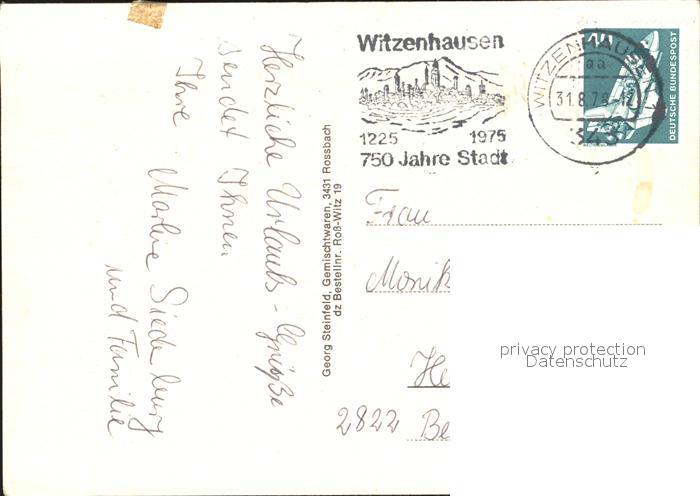 Herzliche Urlaubs-Grüße
sendet Ihnen
Ihre
Marlie Siedeburg
und Familie
Georg Steinfeld, Gemischtwaren, 3431 Rossbach
dz Bestellnr. Roß-Witz 19
Witzenhausen
1225 1975
750 Jahre Stadt
WITZENHAUSEN
aa
31.8.76-12
343
40
DEUTSCHE BUNDESPOST
Frau
Monik
He
2822 Be
privacy protection
Datenschutz